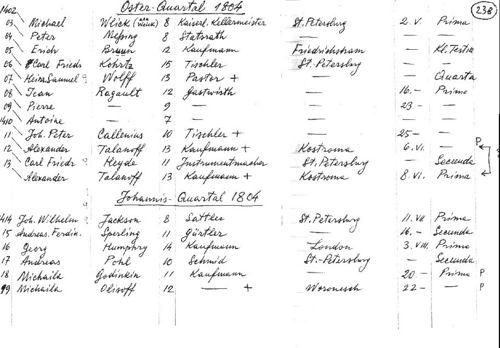 Oster-Quartal 1804 (238)
1402
03 Michael Wlick 8 Kaiserl. Kellermeister St. Petersburg 2. V. Prima
04 Peter Neßing 8 Statsrath — — —
05 Erich Bruun 12 Kaufmann Friedrichsham — Kl. Testia
06 Carl Friedr. Kohrtz 15 Tischler St. Petersburg — —
07 Heinr. Samuel Wolff 13 Pastor + — — Quarta
08 Jean Ragault 12 Gastwirth — 16. — Prima
09 Pierre — 9 — — 23 — —
1410 Antoine — 7 — —
11 Joh. Peter Callenius 10 Tischler + — 25 — —
12 Alexander Talanoff 13 Kaufmann + Kostroma 6. VI. — P
13 Carl Friedr. Heyde 11 Instrumentmacher St. Petersburg — Secunda
Alexander Talanoff 13 Kaufmann + Kostroma 8 VI. Prima P
Johannis-Quartal 1804
1414 Joh. Wilhelm Jackson 8 Sattler St. Petersburg 11. VII Prima
15 Andreas. Ferdin. Sperling 11 Gürtler — 16. — Secunda
16 Georg Humphry 14 Kaufmann London 3. VIII. Prima
17 Andreas Pohl 10 Schmid St.-Petersburg — Secunda
18 Michaila Godinkin 11 Kaufmann — 20 — Prima P
19 Michaila Olisoff 12 — + Woronesch 22 — — P